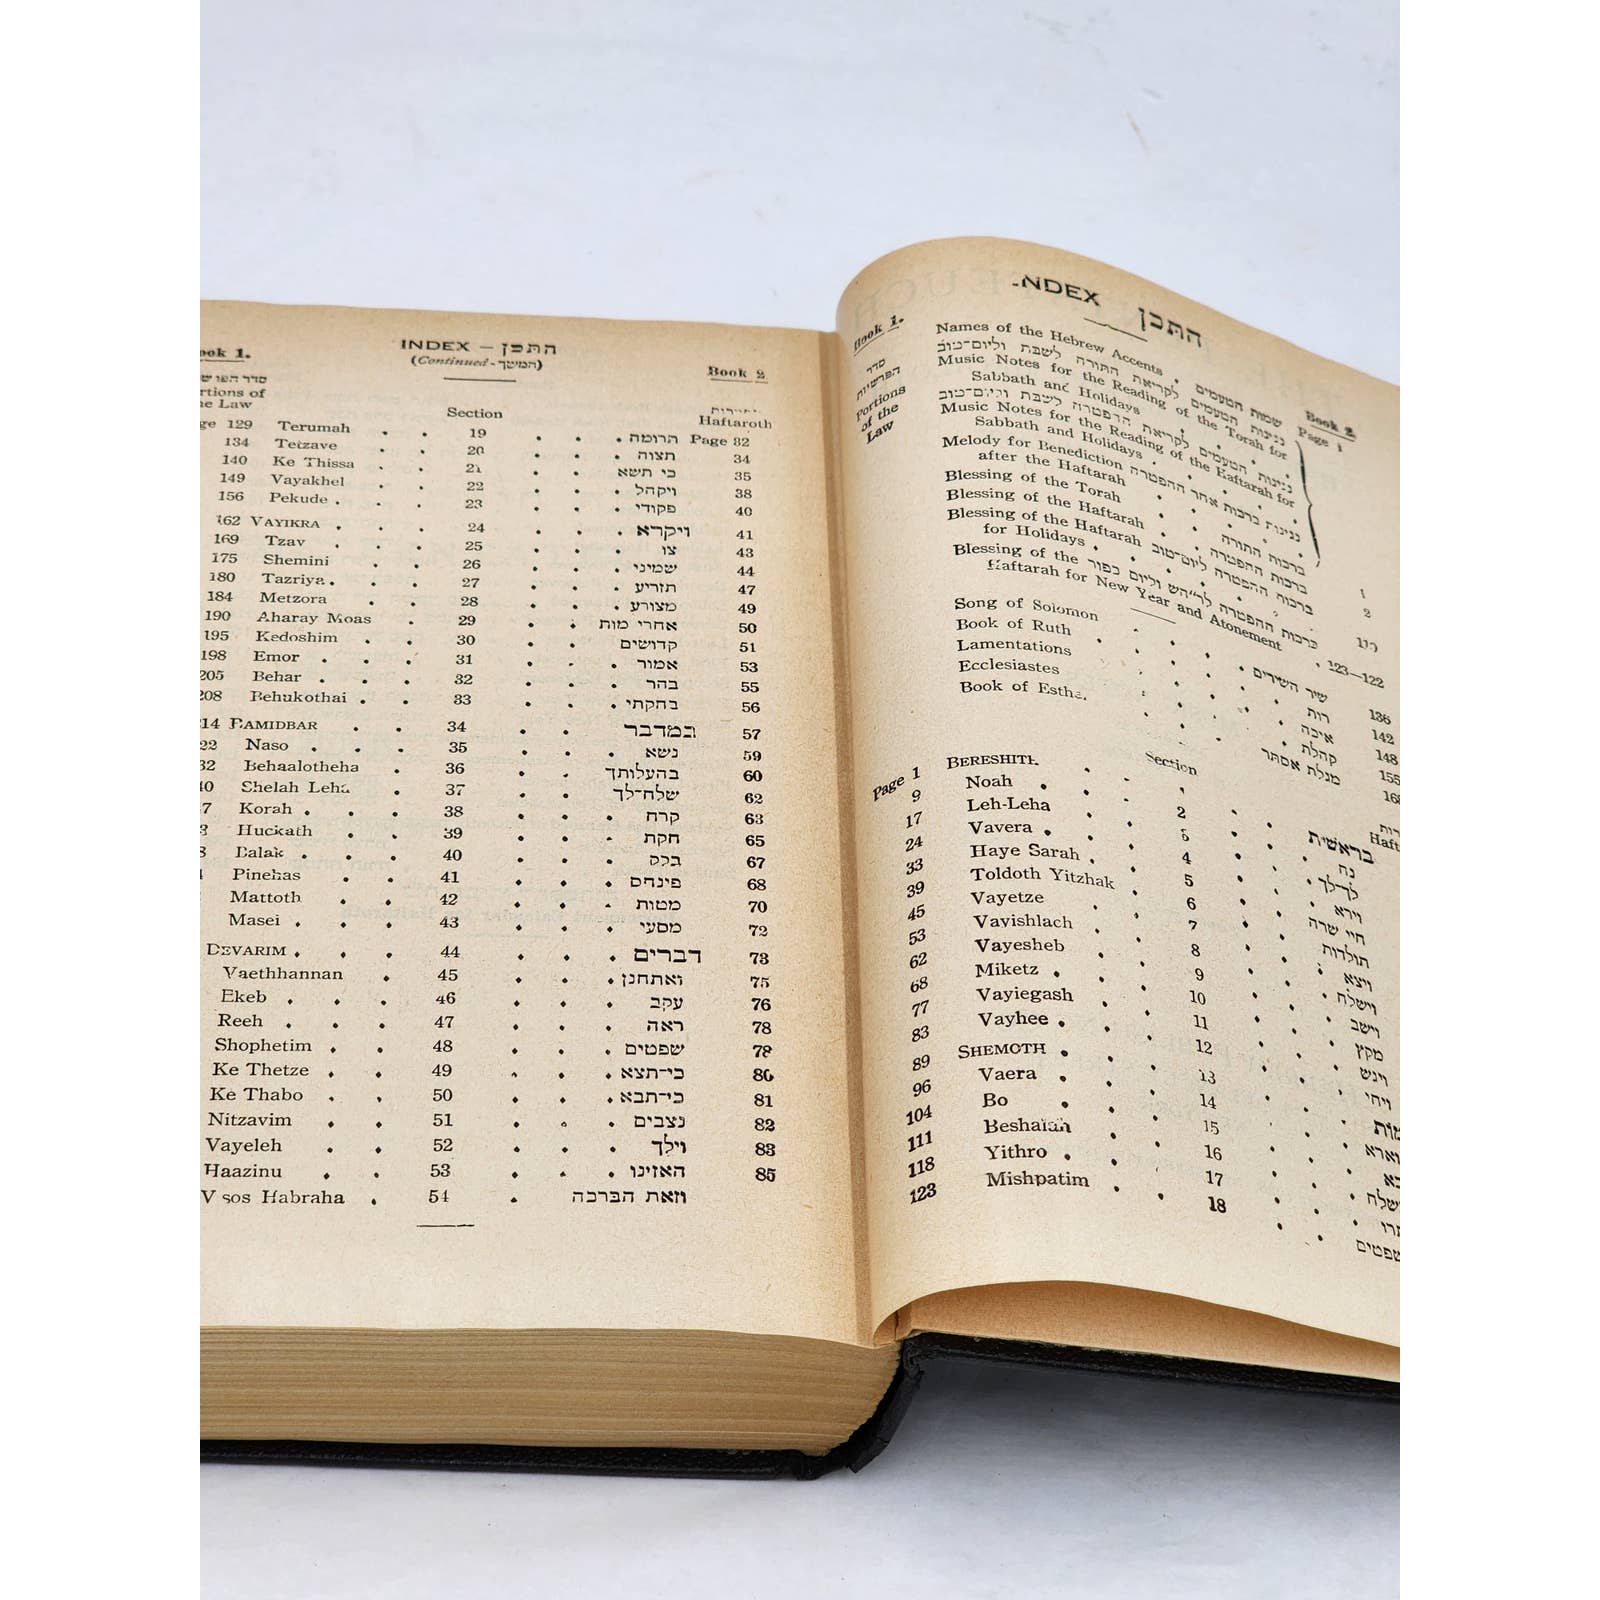 NDEX התכן
Book 1.
Book 2
סדר
הפרשיות
Portions
of the
Law
Page
Names of the Hebrew Accents . שמות הטעמים
נגינות הטעמים לקריאת התורה לשבת וליום־טוב
Music Notes for the Reading of the Torah for
Sabbath and Holidays
נגינות הטעמים לקריאת הפטרה לשבת וליום־טוב
Music Notes for the Reading of the Haftarah for
Sabbath and Holidays .
Melody for Benediction נגינות ברכות אחר ההפטרה
after the Haftarah
Blessing of the Torah ברכות התורה
Blessing of the Haftarah ברכות ההפטרה 2
Blessing of the Haftarah ברכות ההפטרה ליום־טוב
for Holidays .
Blessing of the ברכות ההפטרה לר״הש וליום כפור
Haftarah for New Year and Atonement . 123—122
Song of Solomon שיר השירים 136
Book of Ruth רות 142
Lamentations איכה 148
Ecclesiastes קהלת 155
Book of Esthe. מגלת אסתר
Section
Page 1 BERESHITH בראשית
9 Noah . 2 נח
17 Leh-Leha לך־לך
24 Vavera . 4 וירא
33 Haye Sarah . 5 חיי שרה
39 Toldoth Yitzhak 6 תולדות
45 Vayetze 7 ויצא
53 Vavishlach 8 וישלח
62 Vayesheb 9 וישב
68 Miketz . 10 מקץ
77 Vayiegash 11 ויגש
83 Vayhee . 12 ויחי
89 SHEMOTH . 13
96 Vaera . 14 וארא
104 Bo . 15
111 Beshalah 16
118 Yithro . 17
123 Mishpatim . 18 שפטים
INDEX — התכן
(Continued - המשך)
ook 1.
Book 2
סדר הפרש
rtions of
he Law
Section
Haftaroth
ge 129 Terumah . . 19 . . . תרומה Page 32
134 Tetzave . . 20 . . . תצוה 34
140 Ke Thissa . . 21 . . . כי תשא 35
149 Vayakhel . . 22 . . . ויקהל 38
156 Pekude . . . 23 . . . פקודי 40
162 VAYIKRA . . . 24 . . . ויקרא 41
169 Tzav . . . 25 . . . צו 43
175 Shemini . . 26 . . . שמיני 44
180 Tazriya . . . 27 . . . תזריע 47
184 Metzora . . 28 . . . מצורע 49
190 Aharay Moas . 29 . . אחרי מות 50
195 Kedoshim . . 30 . . קדושים 51
198 Emor . . . 31 . . . אמור 53
205 Behar . . . 32 . . . בהר 55
208 Behukothai . . 33 . . . בחקתי 56
214 BAMIDBAR . . 34 . . במדבר 57
22 Naso . . . 35 . . . נשא 59
32 Behaalotheha . 36 . . בהעלותך 60
40 Shelah Leha . 37 . . שלח־לך 62
7 Korah . . . 38 . . . קרח 63
Huckath . . 39 . . . חקת 65
Balak . . . 40 . . . בלק 67
Pinehas . . 41 . . . פינחס 68
Mattoth . . 42 . . . מטות 70
Masei . . . 43 . . . מסעי 72
DEVARIM . . . 44 . . . דברים 73
Vaethhannan . 45 . . . ואתחנן 75
Ekeb . . . 46 . . . עקב 76
Reeh . . . 47 . . . ראה 78
Shophetim . . 48 . . . שפטים 78
Ke Thetze . . 49 . . . כי־תצא 80
Ke Thabo . . 50 . . . כי־תבא 81
Nitzavim . . 51 . . . נצבים 82
Vayeleh . . 52 . . . וילך 83
Haazinu . . 53 . . . האזינו 85
V sos Habraha . 54 . וזאת הברכה